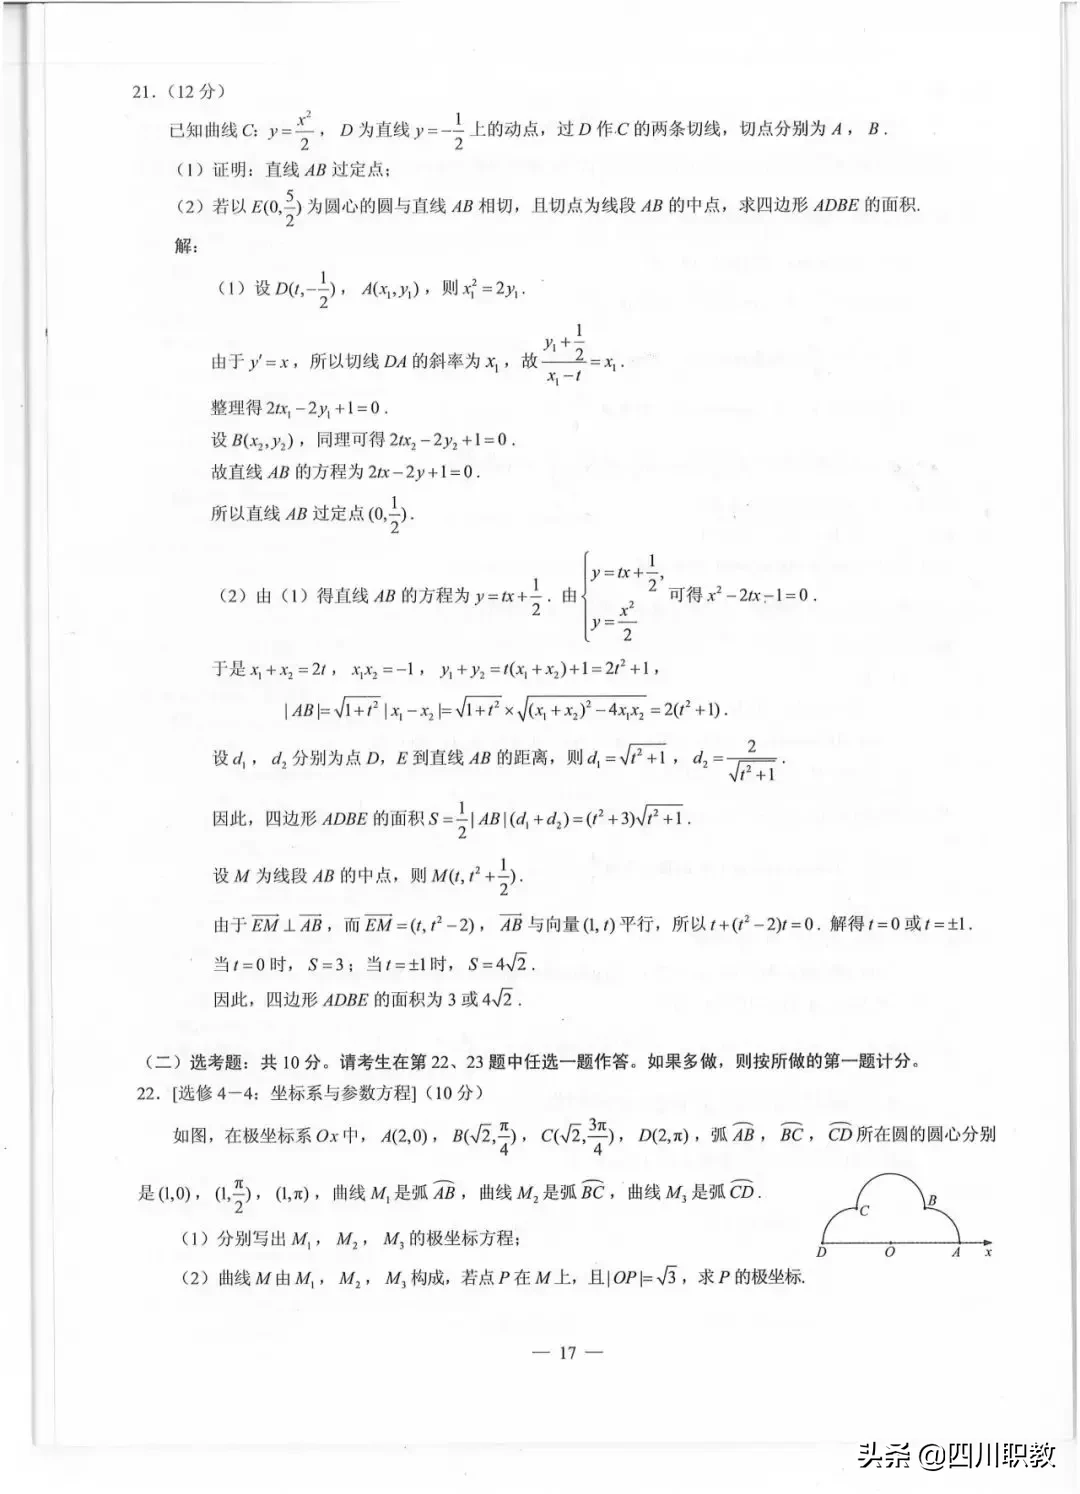 21.（12 分）
已知曲线 C: y=x²/2， D 为直线 y=-1/2 上的动点，过 D 作 C 的两条切线，切点分别为 A， B．
（1）证明：直线 AB 过定点；
（2）若以 E(0,5/2) 为圆心的圆与直线 AB 相切，且切点为线段 AB 的中点，求四边形 ADBE 的面积.
解：
（1）设 D(t,-1/2)， A(x₁,y₁)，则 x₁²=2y₁．
由于 y′=x，所以切线 DA 的斜率为 x₁，故 (y₁+1/2)/(x₁-t)=x₁．
整理得 2tx₁-2y₁+1=0．
设 B(x₂,y₂)，同理可得 2tx₂-2y₂+1=0．
故直线 AB 的方程为 2tx-2y+1=0．
所以直线 AB 过定点 (0,1/2)．
（2）由（1）得直线 AB 的方程为 y=tx+1/2．由 { y=tx+1/2, y=x²/2 可得 x²-2tx-1=0．
于是 x₁+x₂=2t， x₁x₂=-1， y₁+y₂=t(x₁+x₂)+1=2t²+1，
|AB|=√(1+t²)|x₁-x₂|=√(1+t²)×√((x₁+x₂)²-4x₁x₂)=2(t²+1)．
设 d₁， d₂ 分别为点 D，E 到直线 AB 的距离，则 d₁=√(t²+1)， d₂=2/√(t²+1)．
因此，四边形 ADBE 的面积 S=1/2|AB|(d₁+d₂)=(t²+3)√(t²+1)．
设 M 为线段 AB 的中点，则 M(t,t²+1/2)．
由于 EM⊥AB，而 EM=(t,t²-2)， AB 与向量 (1,t) 平行，所以 t+(t²-2)t=0．解得 t=0 或 t=±1．
当 t=0 时， S=3；当 t=±1 时， S=4√2．
因此，四边形 ADBE 的面积为 3 或 4√2．
（二）选考题：共 10 分。请考生在第 22、23 题中任选一题作答。如果多做，则按所做的第一题计分。
22．[选修 4－4：坐标系与参数方程]（10 分）
如图，在极坐标系 Ox 中， A(2,0)， B(√2,π/4)， C(√2,3π/4)， D(2,π)，弧 AB， BC， CD 所在圆的圆心分别
是 (1,0)， (1,π/2)， (1,π)，曲线 M₁ 是弧 AB，曲线 M₂ 是弧 BC，曲线 M₃ 是弧 CD．
（1）分别写出 M₁， M₂， M₃ 的极坐标方程；
（2）曲线 M 由 M₁， M₂， M₃ 构成，若点 P 在 M 上，且 |OP|=√3，求 P 的极坐标.
C B
D O A x
— 17 —
头条 @四川职教